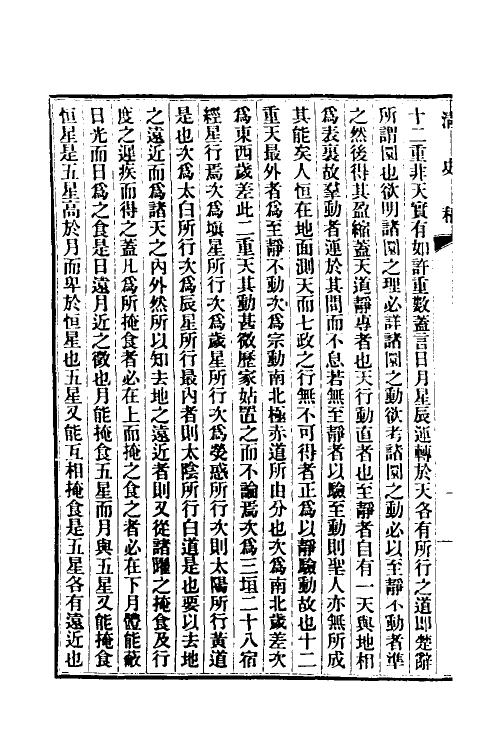 清史稿
十二重非天實有如許重數蓋言日月星辰運轉於天各有所行之道即楚辭
所謂圜也欲明諸圜之理必詳諸圜之動欲考諸圜之動必以至靜不動者準
之然後得其盈縮蓋天道靜專者也天行動直者也至靜者自有一天與地相
爲表裏故羣動者運於其間而不息若無至靜者以驗至動則聖人亦無所成
其能矣人恒在地面測天而七政之行無不可得者正爲以靜驗動故也十二
重天最外者爲至靜不動次爲宗動南北極赤道所由分也次爲南北歲差次
爲東西歲差此二重天其動甚微歷家姑置之而不論焉次爲三垣二十八宿
經星行焉次爲塡星所行次爲歲星所行次爲熒惑所行次則太陽所行黃道
是也次爲太白所行次爲辰星所行最內者則太陰所行白道是也要以去地
之遠近而爲諸天之內外然所以知去地之遠近者則又從諸曜之掩食及行
度之遲疾而得之蓋凡爲所掩食者必在上而掩之食之者必在下月體能蔽
日光而日爲之食是日遠月近之徵也月能掩食五星而月與五星又能掩食
恒星是五星高於月而卑於恒星也五星又能互相掩食是五星各有遠近也